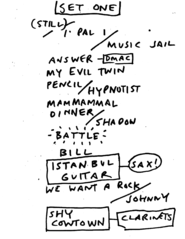 SET ONE
(STILL)
1 PAL 1
MUSIC JAIL
ANSWER - DMAC
MY EVIL TWIN
PENCIL / HYPNOTIST
MAMMAMMAL
DINNER / SHADOW
BATTLE
BILL
ISTANBUL SAX!
GUITAR
WE WANT A ROCK
JOHNNY
SHY CLARINETS
COWTOWN